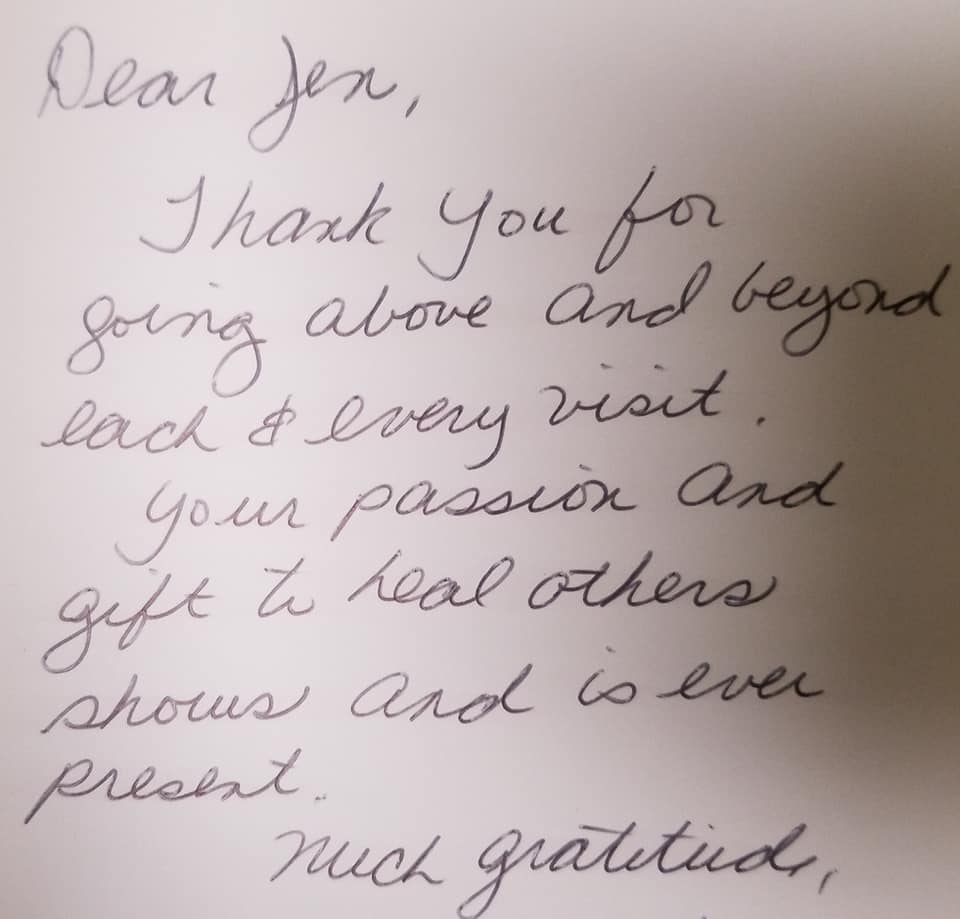 Dear Jen,
Thank you for
going above and beyond
each & every visit.
Your passion and
gift to heal others
shows and is ever
present.
Much gratitude,